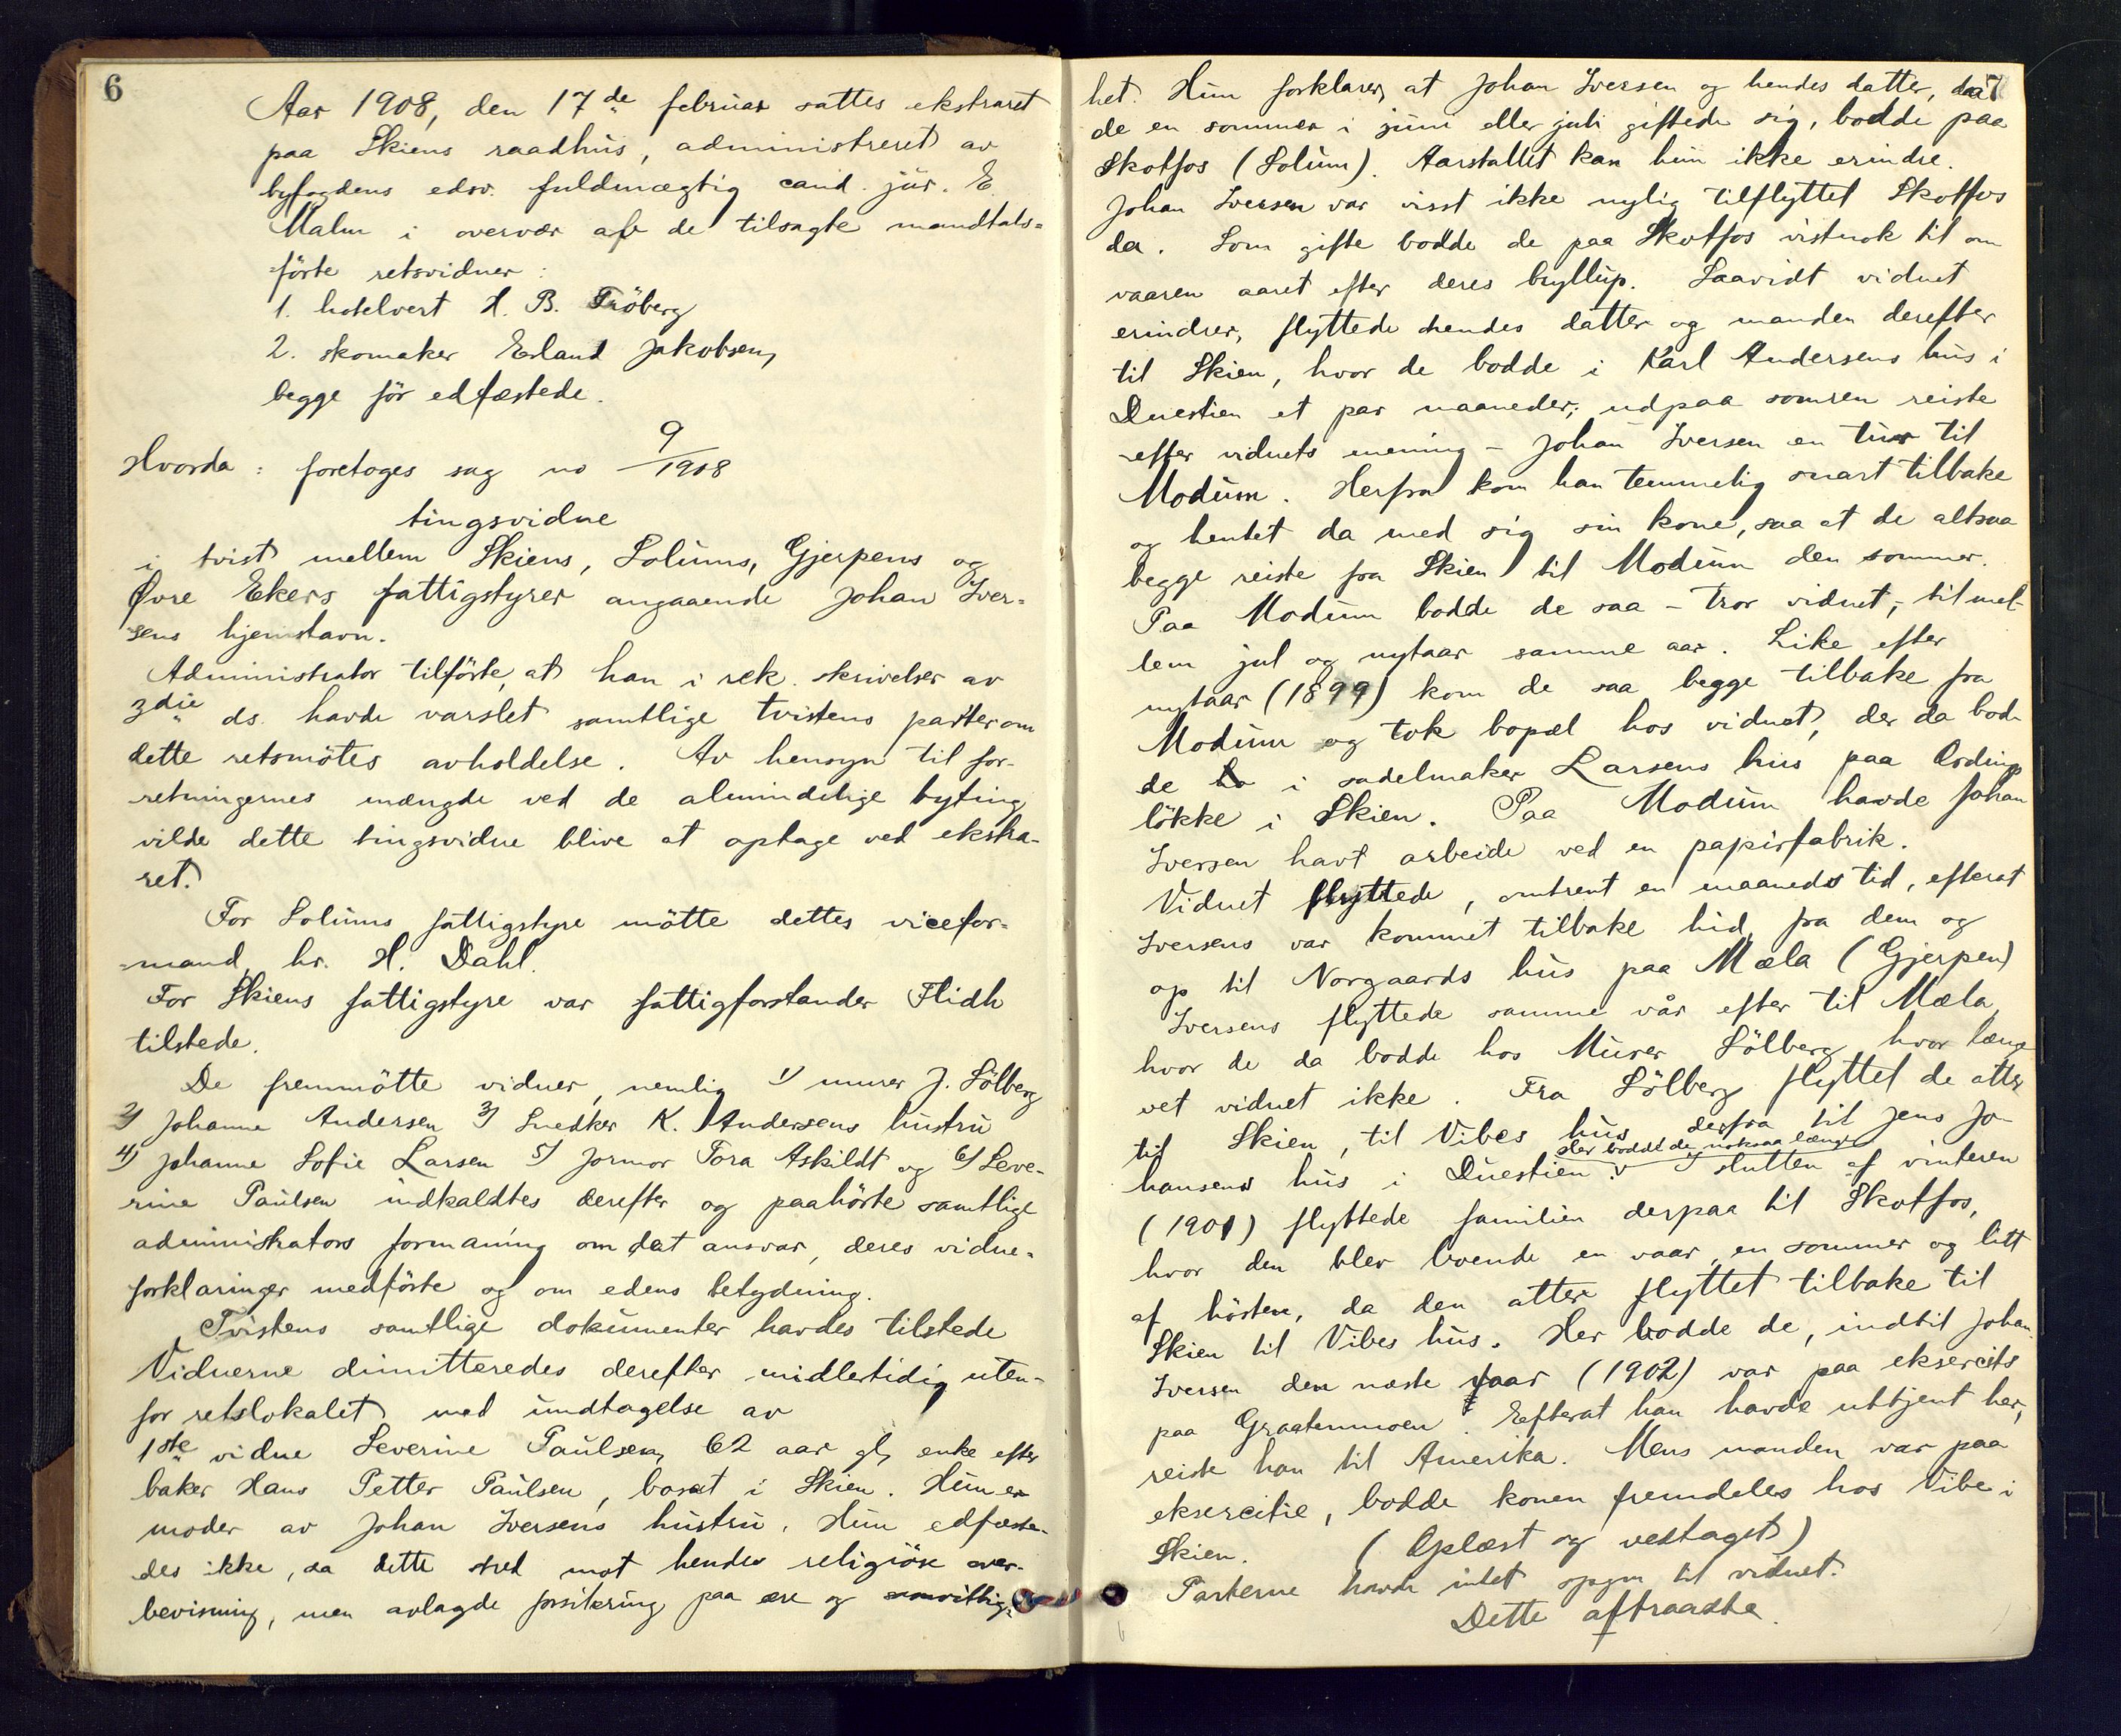 6
Aar 1908, den 17de februar sattes ekstraret
paa Skiens raadhus, administreret av
byfogdens edsv. fuldmægtig cand. jur. E.
Malm i overvær af de tilsagte mandtals=
förte retsvidner:
1. hotelvert H. B. Fröberg
2. skomaker Erland Jakobsen,
begge för edfæstede.
Hvorda: foretoges sag no 9/1908
tingsvidne
i tvist mellem Skiens, Solums, Gjerpens og
Øvre Ekers fattigstyrer angaaende Johan Iver=
sens hjemstavn.
Administrator tilförte, at han i rek. skrivelser av
3die ds. havde varslet samtlige tvistens parter om
dette retsmötes avholdelse. Av hensyn til for-
retningernes mængde ved de almindelige byting
vilde dette tingsvidne blive at optage ved ekstra-
ret.
For Solums fattigstyre mötte dettes vicefor-
=mand, hr. H. Dahl.
For Skiens fattigstyre var fattigforstander Flidh
tilstede.
De fremmötte vidner, nemlig 1) murer J. Sölberg
2) Johanne Andersen 3) Snedker K. Andersens hustru
4) Johanne Sofie Larsen 5) Jormor Tora Askildt og 6) Seve-
rine Paulsen indkaldtes derefter og paahörte samtlige
administrators formaning om det ansvar, deres vidne-
forklaringer medförte og om edens betydning.
Tvistens samtlige dokumenter havdes tilstede
Vidnerne dimitteredes derefter midlertidig uten-
for retslokalet med undtagelse av
1ste vidne Severine Paulsen, 62 aar gl, enke efter
baker Hans Petter Paulsen, bosat i Skien. Hun er
moder av Johan Iversens hustru. Hun edfæste-
des ikke, da dette stred mot hendes religiöse over-
bevisning, men avlagde forsikring paa ære og samvittig-
7
het. Hun forklarer, at Johan Iversen og hendes datter, da
de en sommer i juni eller juli giftede sig, bodde paa
Skotfos (Solum). Aarstallet kan hun ikke erindre.
Johan Iversen var visst ikke nylig tilflyttet Skotfos
da. Som gifte bodde de paa Skotfos vistnok til om
vaaren aaret efter deres bryllup. Saavidt vidnet
erindrer, flyttede hendes datter og manden derefter
til Skien, hvor de bodde i Karl Andersens hus i
Duestien et par maaneder; udpaa somren reiste
-efter vidnets mening - Johan Iversen en tur til
Modum. Herfra kom han temmelig snart tilbake
og hentet da med sig sin kone, saa at de altsaa
begge reiste fra Skien til Modum den sommer.
Paa Modum bodde de saa - tror vidnet, - til mel-
lem jul og nytaar samme aar. Like efter
nytaar (1899) kom de saa begge tilbake fra
Modum og tok bopæl hos vidnet, der da bod-
de i sadelmaker Larsens hus paa Ordings
lökke i Skien. Paa Modum havde Johan
Iversen havt arbeide ved en papirfabrik.
Vidnet flyttede, omtrent en maaneds tid, efterat
Iversens var kommet tilbake hid, fra dem og
op til Norgaards hus paa Mæla (Gjerpen)
Iversens flyttede samme vår efter til Mæla,
hvor de da bodde hos Murer Sölberg, hvor længe
vet vidnet ikke. Fra Sölberg flyttet de atter
til Skien, til Vibes hus, derfra til Jens Jo-
hansens hus i Duestien. Her bodde de noksaa længe I slutten af vinteren
(1901) flyttede familien derpaa til Skotfos,
hvor den blev boende en vaar, en sommer og litt
af hösten, da den atter flyttet tilbake til
Skien til Vibes hus. Her bodde de, indtil Johan
Iversen den næste vaar (1902) var paa eksercits
paa Graatenmoen. Efterat han havde uttjent her,
reiste han til Amerika. Mens manden var paa
eksercitie, bodde konen fremdeles hos Vibe i
Skien. (Oplæst og vedtaget)
Parterne havde intet spgm til vidnet.
Dette aftraadte.